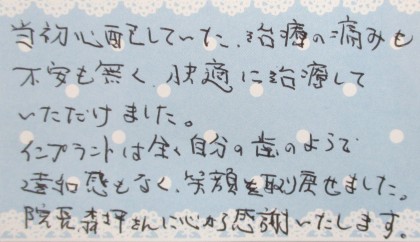 当初心配していた、治療の痛みも
不安も無く、快適に治療して
いただけました。
インプラントは全く自分の歯のようで
違和感もなく、笑顔を取り戻せました。
院長森坪さんに心から感謝いたします。